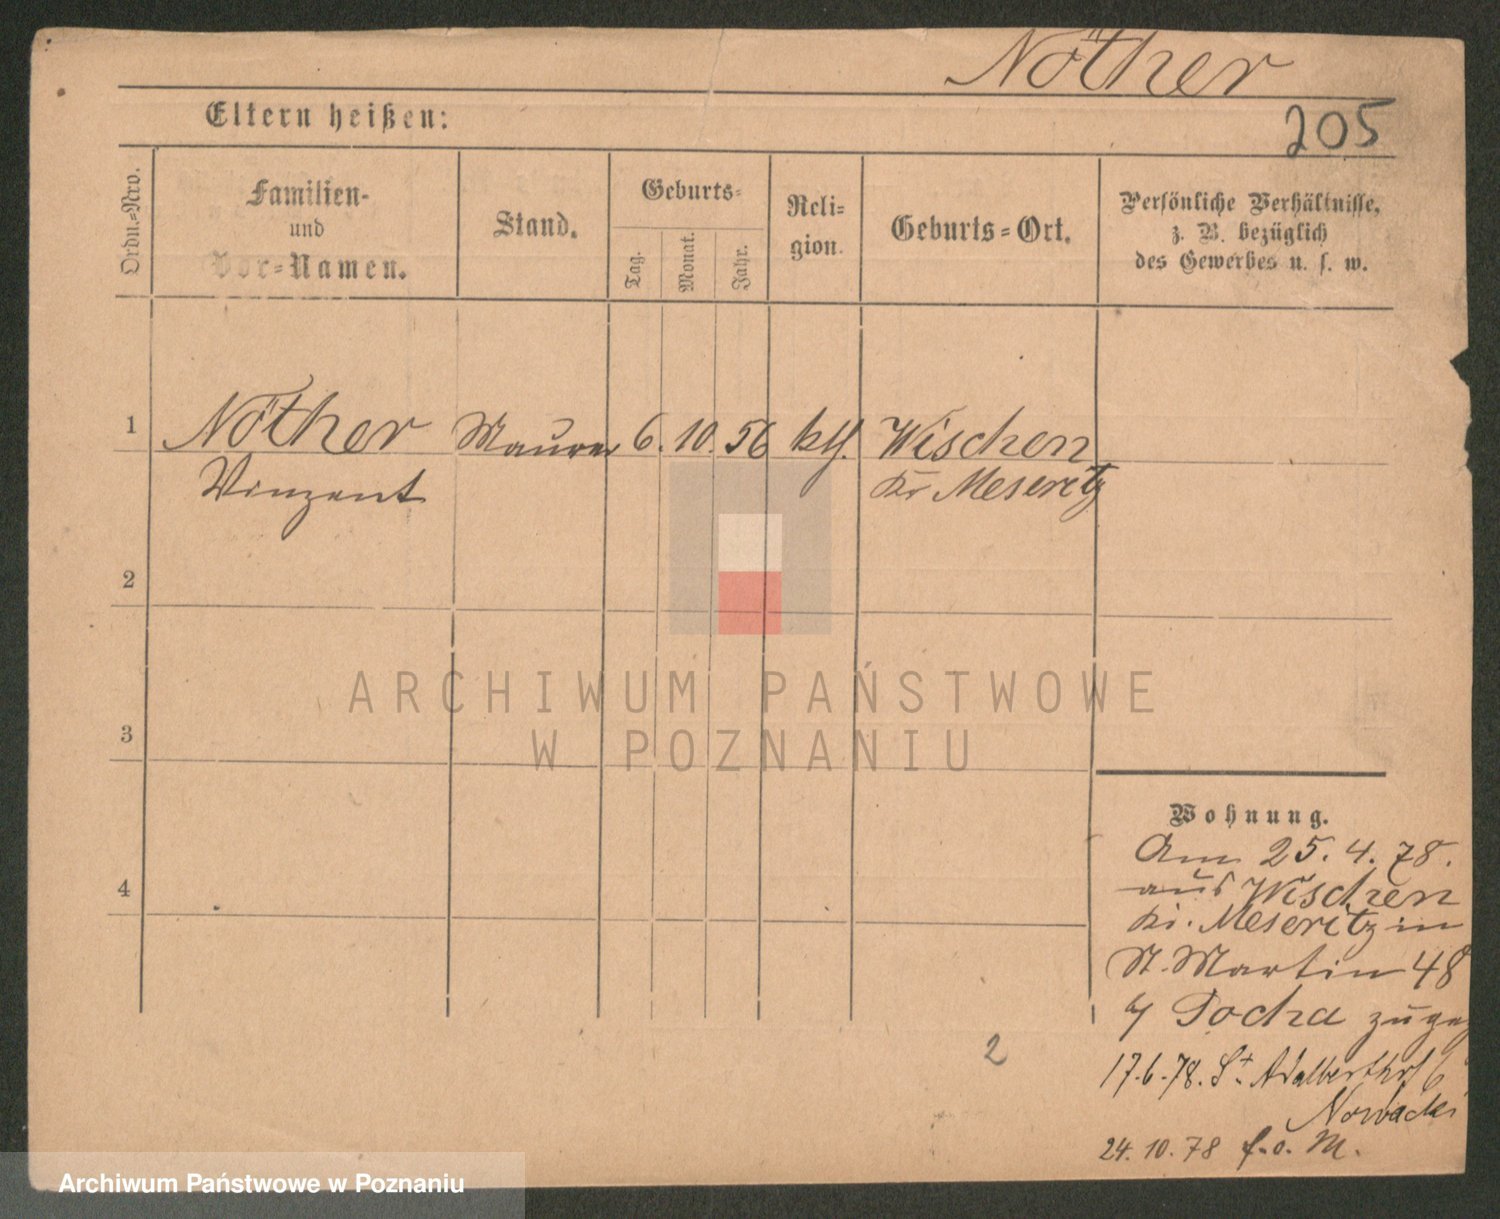 Nöther
Eltern heißen:
205
Ordn.-Nro.
Familien-
und
Vor-Namen.
Stand.
Geburts-
Tag.
Monat.
Jahr.
Reli-
gion.
Geburts-Ort.
Persönliche Verhältnisse,
z. B. bezüglich
des Gewerbes u. s. w.
1
Nöther
Vinzent
Maurer
6. 10. 56
kth.
Wischen
Kr Meseritz
2
3
4
ARCHIWUM PAŃSTWOWE
W POZNANIU
Wohnung.
Am 25. 4. 78.
aus Wischen
Kr. Meseritz in
St. Martin 48
Pocha
17. 6. 78. St. Adalbert 6
Nowacki
24. 10. 78 f. o. M.
2
Archiwum Państwowe w Poznaniu